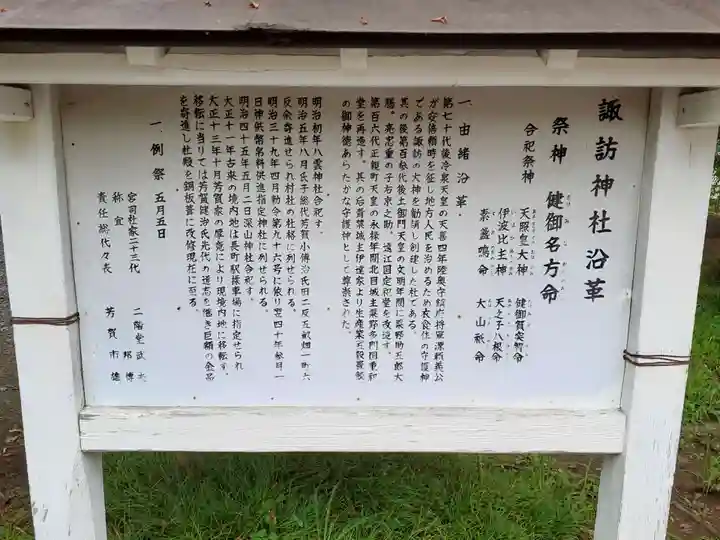 諏訪神社沿革
祭神 健御名方命
合祀祭神
天照皇大神
伊波比主神
素盞鳴命
健御賀突智命
天之子八根命
大山祇命
一.由緒沿革.
第七十代後冷泉天皇の天喜四年陸奥守鎮府将軍源頼義公
が安倍頼時を征し地方人民を治めるため衣食住の守護神
である諏訪の大神を勧請し創建した社である。
其の後第百参代後土御門天皇の文明年間に粟野助五郎大
膳。亮忠重の子右京之助。遠江国定祀堂を改造す。
第百六代正親町天皇の永禄年間北目城主粟野多門国重祀
堂を再造す。其の后若林城主伊達家より生産業五穀豊穣
の御神徳あらたかな守護神として尊崇された。
明治初年八雲神社合祀す。
明治五年八月氏子総代芳賀小傳治氏田二反五畝畑一町六
反余寄進せられ村社の社格に列せられる
明治三十九年四月勅令第九十六号に依り翌四十年参月一
日神供幣帛料供進指定神社に列せられる
明治四十五年五月二日深山神社合祀す。
大正十一年古来の境内地は長町駅操車場に指定せられ
大正十三年十月芳賀家の厚意により現境内地に移転す
移転に当りては芳賀健治氏先代の遺志を継ぎ巨額の金品
を寄進し社殿を銅板葺に改修現在に至る
一.例祭 五月五日
宮司社家二十三代 二階堂武夫
祢宜 邦博
責任総代々表 芳賀市雄